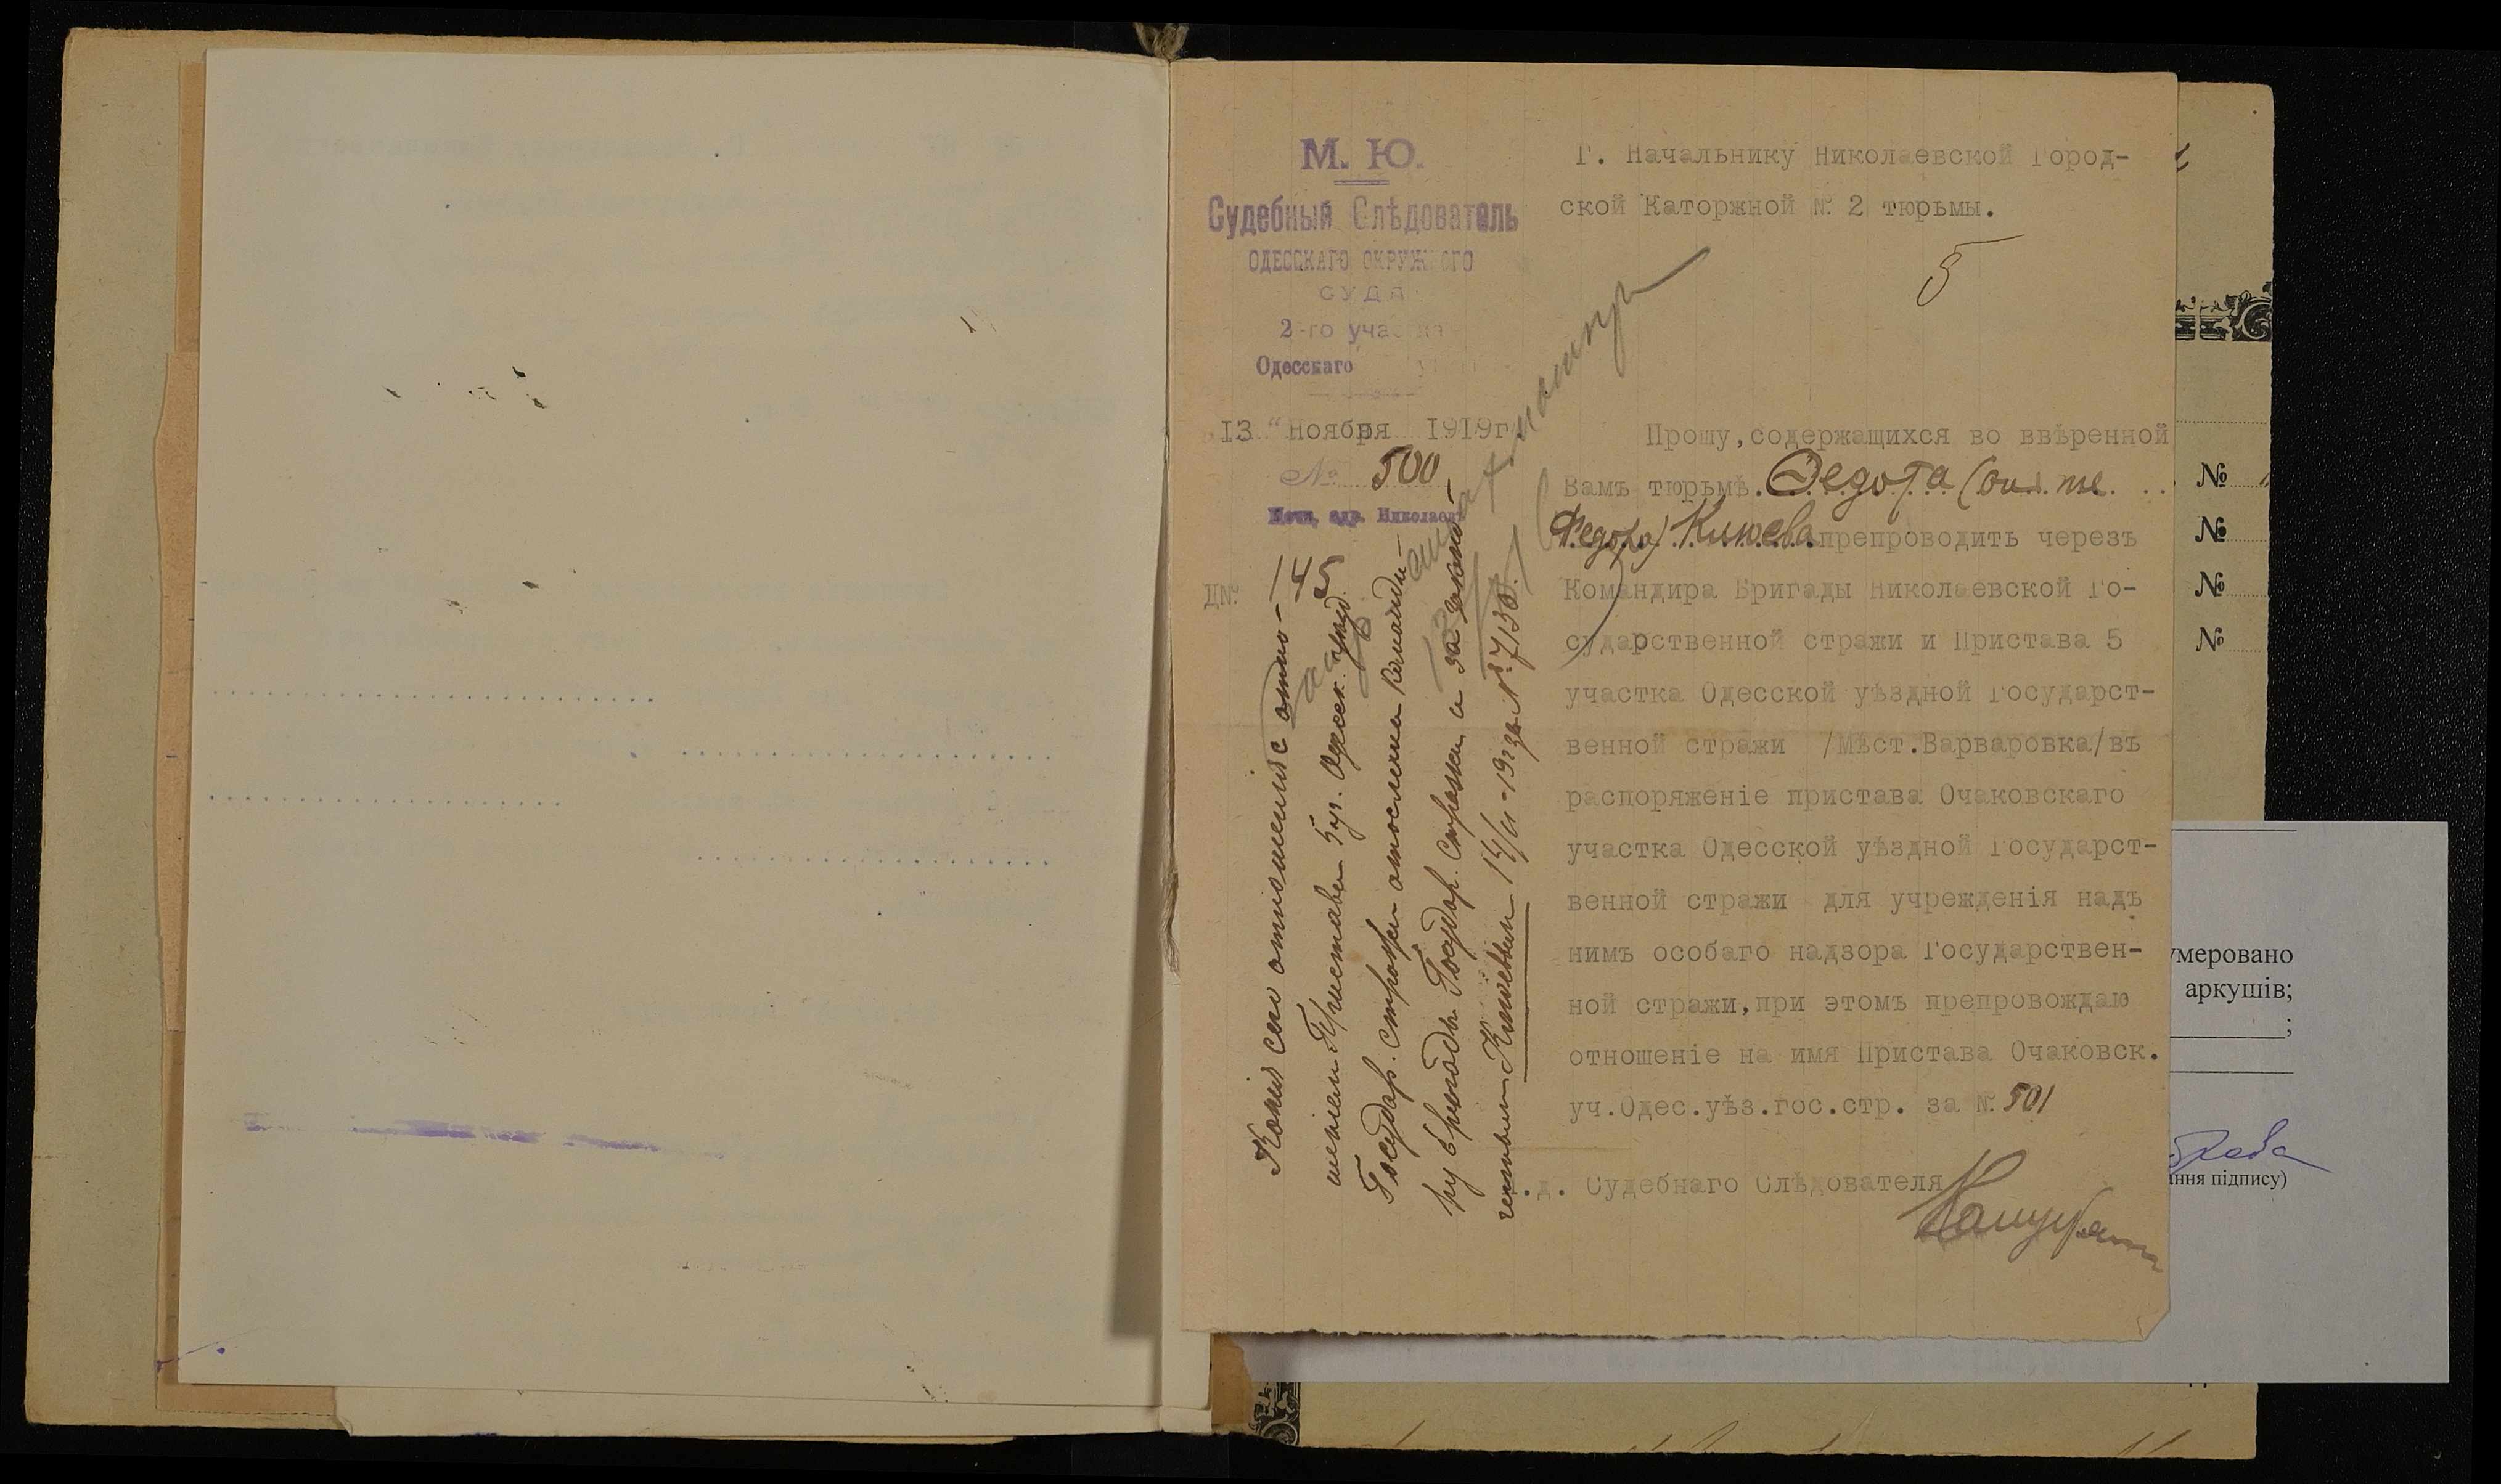 М. Ю.
Судебный Слѣдователь
ОДЕССКАГО ОКРУЖНОГО
СУДА
2-го участка
Одесскаго
„13 “ Ноября 1919г.
№ 500
Почт. адр. Николаевъ
Д№. 145
Г. Начальнику Николаевской Город-
ской Каторжной № 2 тюрьмы.
5
Прошу,содержащихся во ввѣренной
Вамъ тюрьмѣ. Федота (онъ же
Федора) Клюева препроводить черезъ
Командира Бригады Николаевской Го-
сударственной стражи и Пристава 5
участка Одесской уѣздной Государст-
венной стражи /Мѣст.Варваровка/въ
распоряженіе пристава Очаковскаго
участка Одесской уѣздной Государст-
венной стражи для учрежденія надъ
нимъ особаго надзора Государствен-
ной стражи,при этомъ препровождаю
отношеніе на имя Пристава Очаковск.
уч.Одес.уѣз.гос.стр. за № 501
И.д. Судебнаго Слѣдователя
Копия сего отношения с отно-
шением Приставу 5 уч. Одесск. уезд.
Государ. стражи отослена Командиu-
ру бригады Государ. Стражи и за
Клюевым 14/XI-19г. за № 7130.
№
№
№
№
умеровано
аркушів;
;
ння підпису)